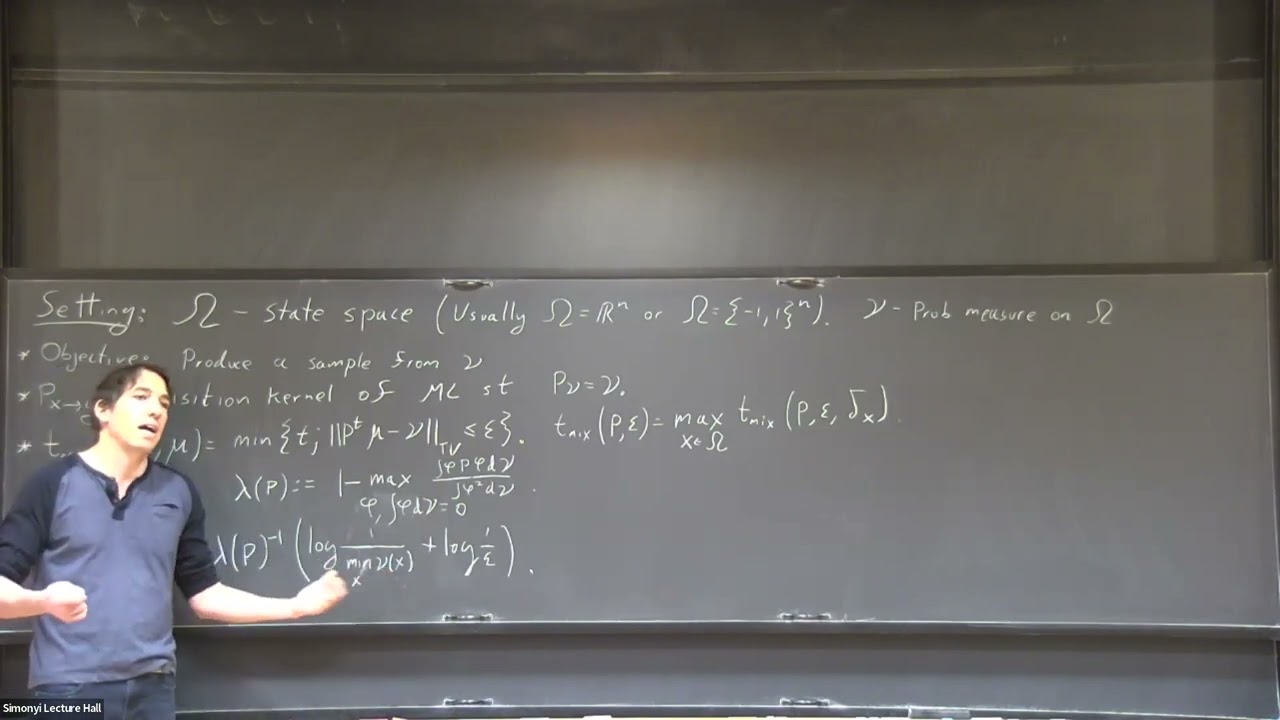 Setting: Ω - state space (Usually Ω=ℝⁿ or Ω={-1,1}ⁿ). ν - Prob measure on Ω
* Objective: Produce a sample from ν
* P_{x→ sition kernel of MC st Pν=ν.
* t , μ) = min{t; ||P^t μ - ν||_{TV} ≤ ε}. t_{mix}(P,ε) = max_{x∈Ω} t_{mix}(P,ε,δ_x).
λ(P) := 1 - max_{φ, ∫φdν=0} ∫φPφdν / ∫φ²dν .
λ(P)^{-1} (log 1/min_x ν(x) + log 1/ε).
Simonyi Lecture Hall